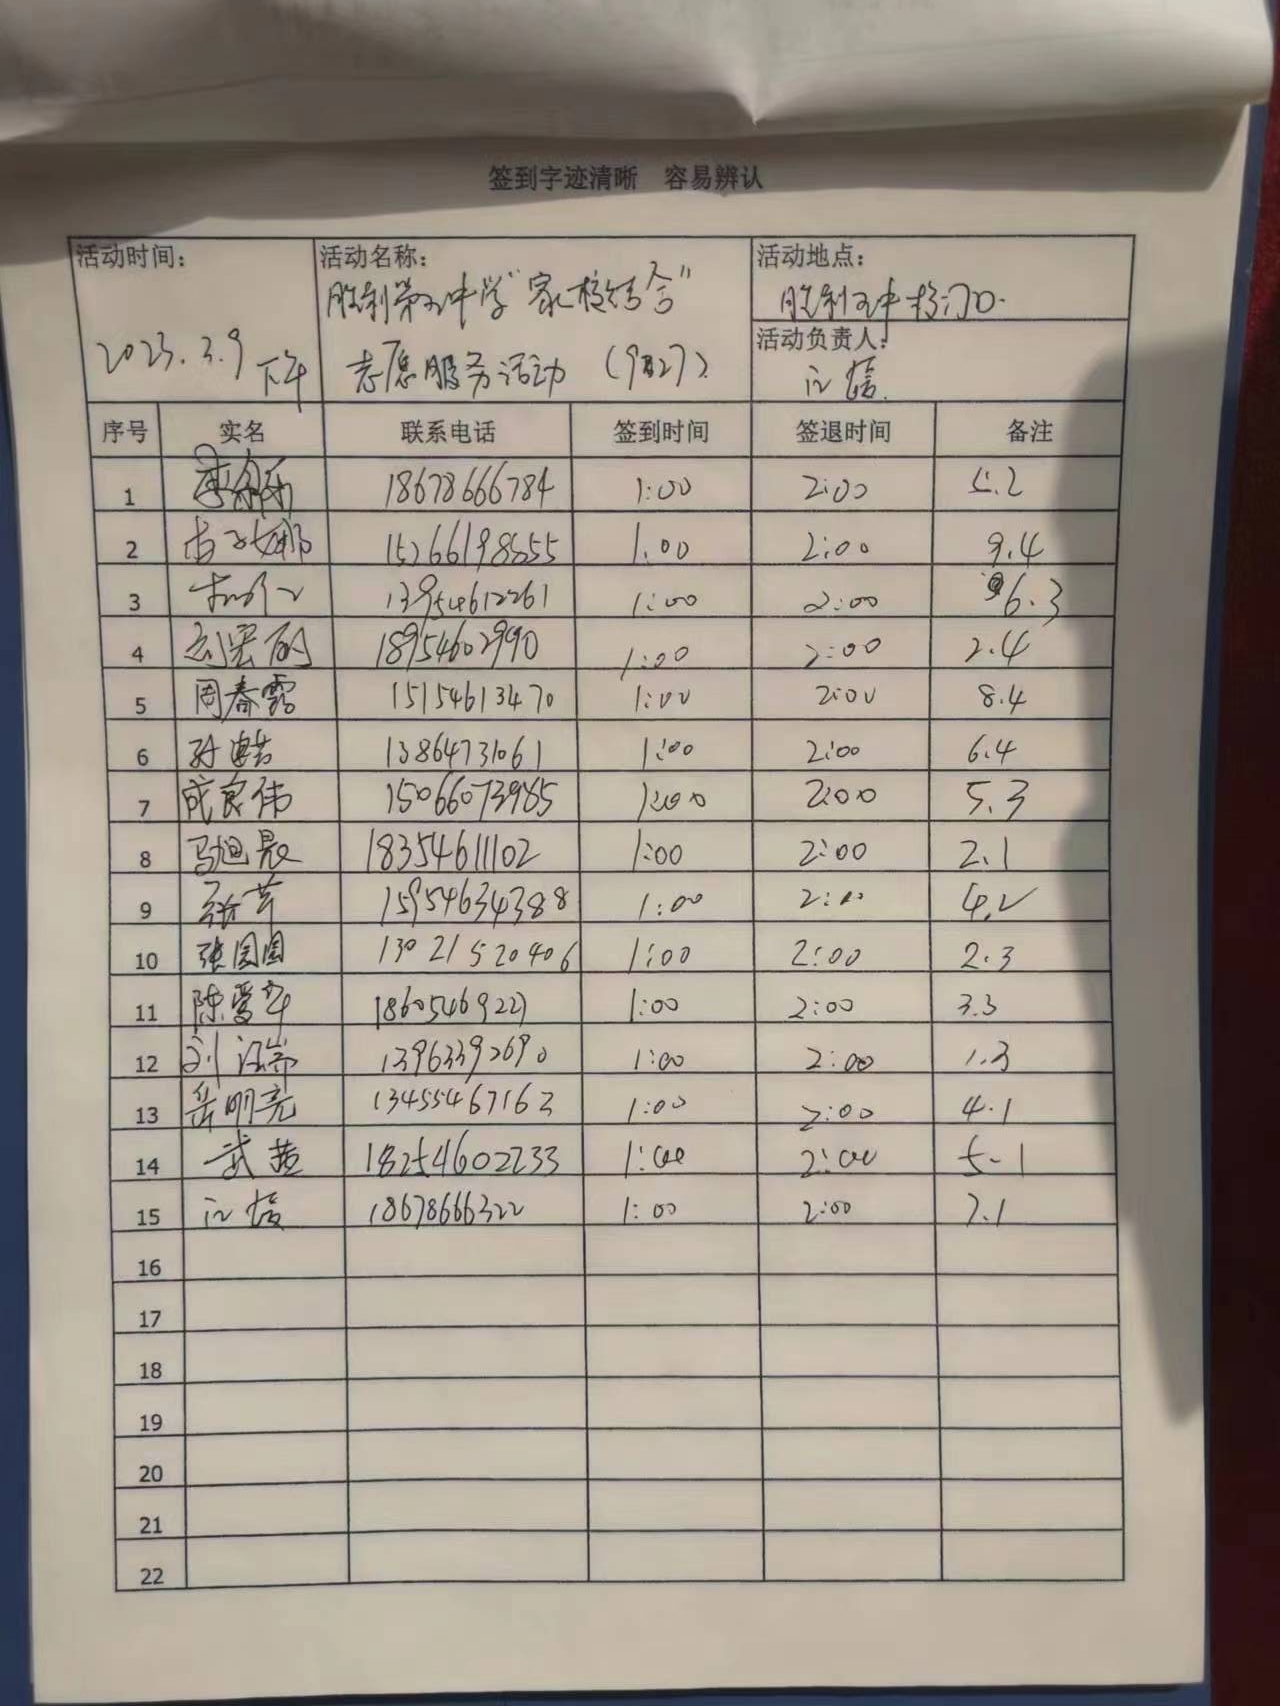 签到字迹清晰 容易辨认
活动时间：
2023.3.9 下午
活动名称：
胜利第五中学“家校结合”
志愿服务活动
活动地点：
胜利五中校门口.
活动负责人：
序号 实名 联系电话 签到时间 签退时间 备注
1 18678666784 1:00 2:00 5.2
2 15266198555 1:00 2:00 9.4
3 13954612261 1:00 2:00 6.3
4 18954602990 1:00 2:00 2.4
5 周春霞 15154613470 1:00 2:00 8.4
6 13864731061 1:00 2:00 6.4
7 成良伟 15066073985 1:00 2:00 5.3
8 马旭晨 18354611102 1:00 2:00 2.1
9 张苹 15954634388 1:00 2:00 4.2
10 张圆圆 13021520406 1:00 2:00 2.3
11 陈爱华 1:00 2:00 3.3
12 13963392690 1:00 2:00 1.3
13 岳明亮 13455467162 1:00 2:00 4.1
14 18254602233 1:00 2:00 5-1
15 18678666322 1:00 2:00 7.1
16
17
18
19
20
21
22